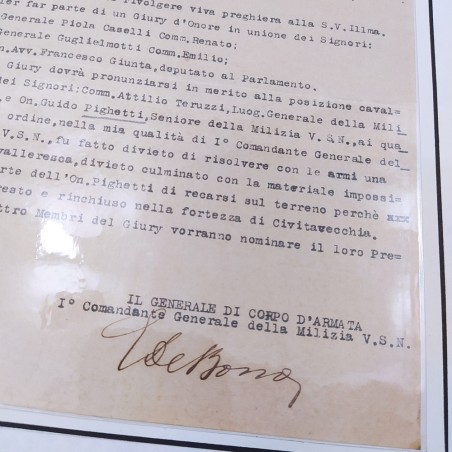 rivolgere viva preghiera alla S.V.Illma.
far parte di un Giury d'Onore in unione dei Signori:
Generale Piola Caselli Comm.Renato;
Generale Guglielmotti Comm.Emilio;
On.Avv.Francesco Giunta, deputato al Parlamento.
Giury dovrà pronunziarsi in merito alla posizione caval=
dei Signori:Comm.Attilio Teruzzi, Luog.Generale della Mili
e On.Guido Pighetti, Seniore della Milizia V.S.N., ai qua
ordine, nella mia qualità di I° Comandante Generale del
V.S.N., fu fatto divieto di risolvere con le armi una
valleresca, divieto culminato con la materiale impossi=
rte dell'On.Pighetti di recarsi sul terreno perchè xxx
esto e rinchiuso nella fortezza di Civitavecchia.
ttro Membri del Giury vorranno nominare il loro Pre=
IL GENERALE DI CORPO D'ARMATA
I° Comandante Generale della Milizia V.S.N.
De Bono